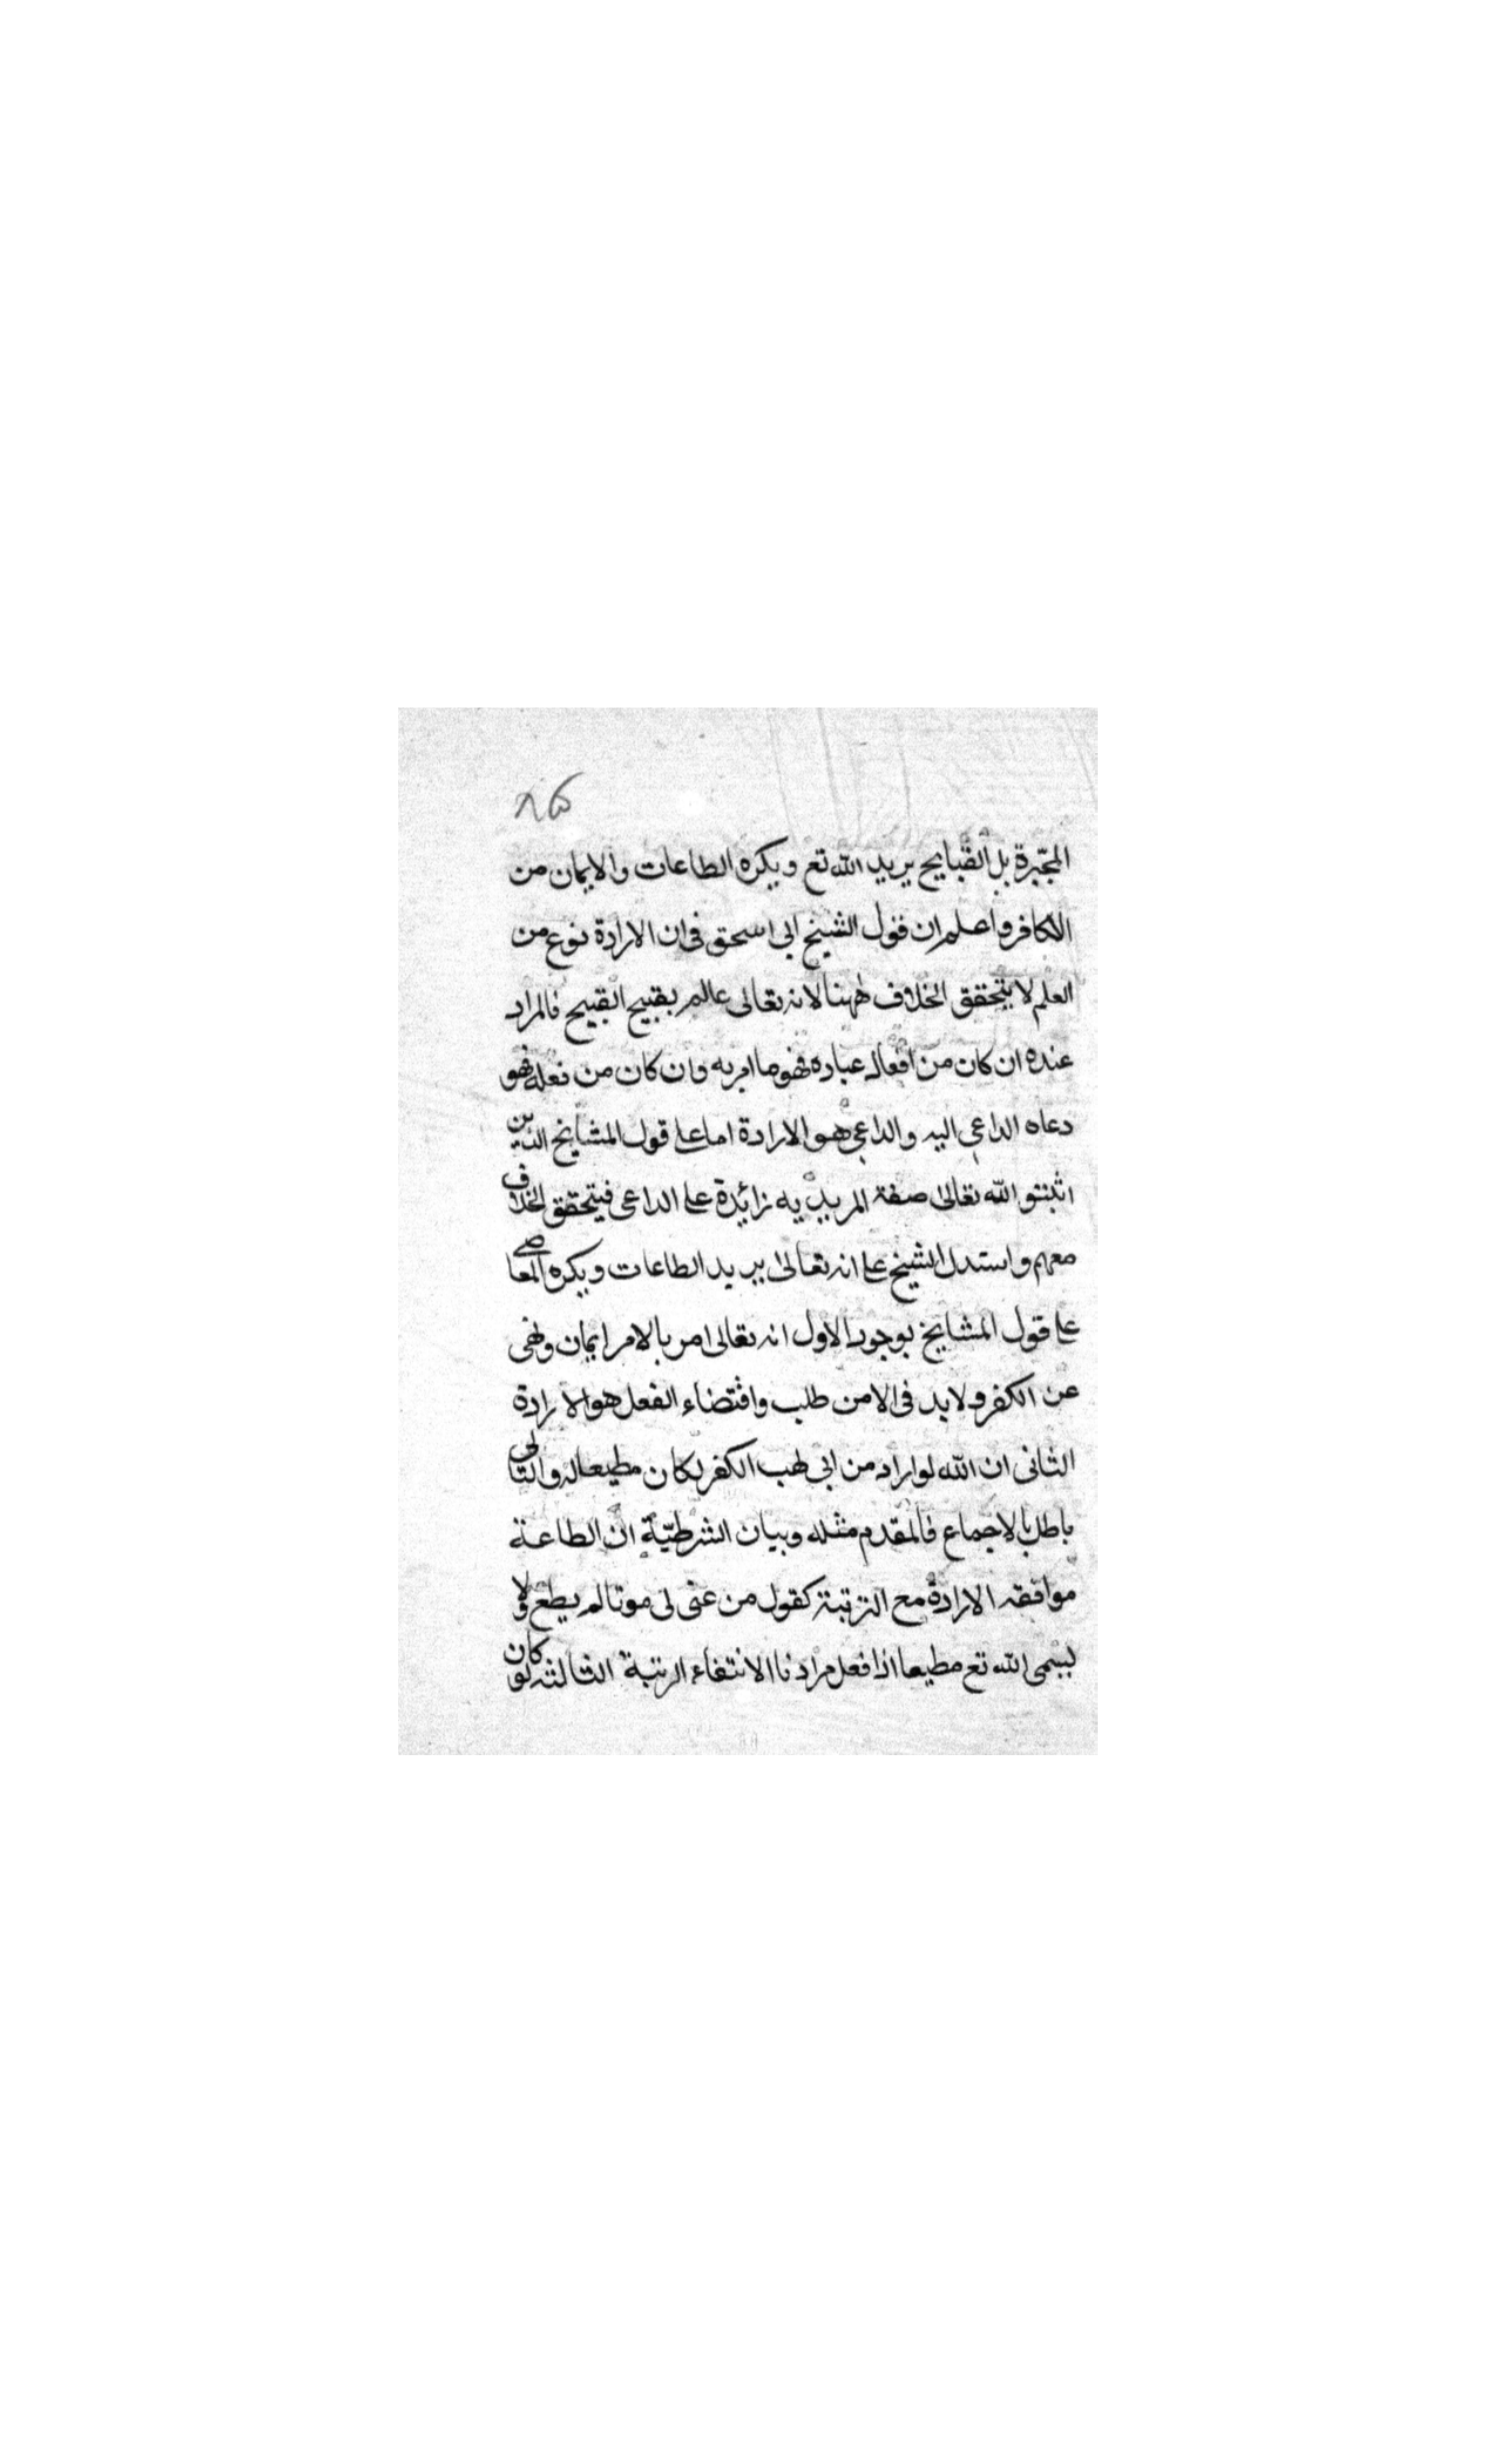 ٨٥
المجبرة بل القبايح يريد الله تع ويكره الطاعات والايمان من
الكافر واعلم ان قول الشيخ ابي اسحق في ان الارادة نوع من
العلم لا يتحقق الخلاف ههنا لانه تعالى عالم بقبيح القبيح فالمراد
عنده ان كان من افعال عباده فهو ما امر به وان كان من فعله فهو
دعاه الداعي اليه والداعي هو الارادة اما على قول المشايخ الذين
اثبتو الله تعالى صفة المريديه زائدة على الداعي فيتحقق الخلاف
معهم واستدل الشيخ على انه تعالى يريد الطاعات ويكره المعاصي
على قول المشايخ بوجوه الاول انه تعالى امر بالامر ايمان ونهى
عن الكفر ولابد في الامن طلب واقتضاء الفعل هو الارادة
الثاني ان الله لو اراد من ابي لهب الكفر لكان مطيعا له والتالي
باطل بالاجماع فالمقدم مثله وبيان الشرطيّة ان الطاعة
موافقه الارادة مع الرتبة كقول من عنى لى موتا لم يطع ولا
يسمى الله تع مطيعا اذا فعل مرادنا الانتفاء الرتبة الثالثه لو كان